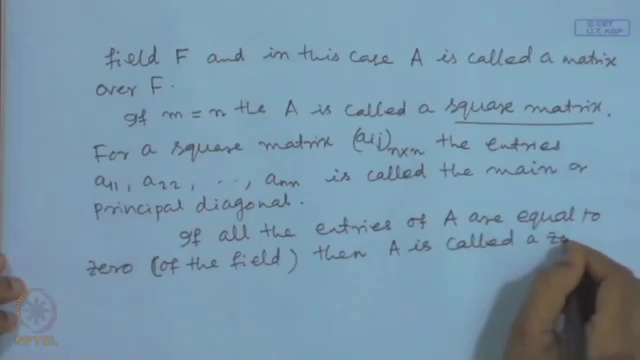 © CET
I.I.T. KGP
field F and in this case A is called a matrix
over F.
If m = n the A is called a square matrix.
For a square matrix (aij)n×n the entries
a11, a22, . . ., ann is called the main or
principal diagonal.
If all the entries of A are equal to
zero (of the field) then A is called a ze
NPTEL